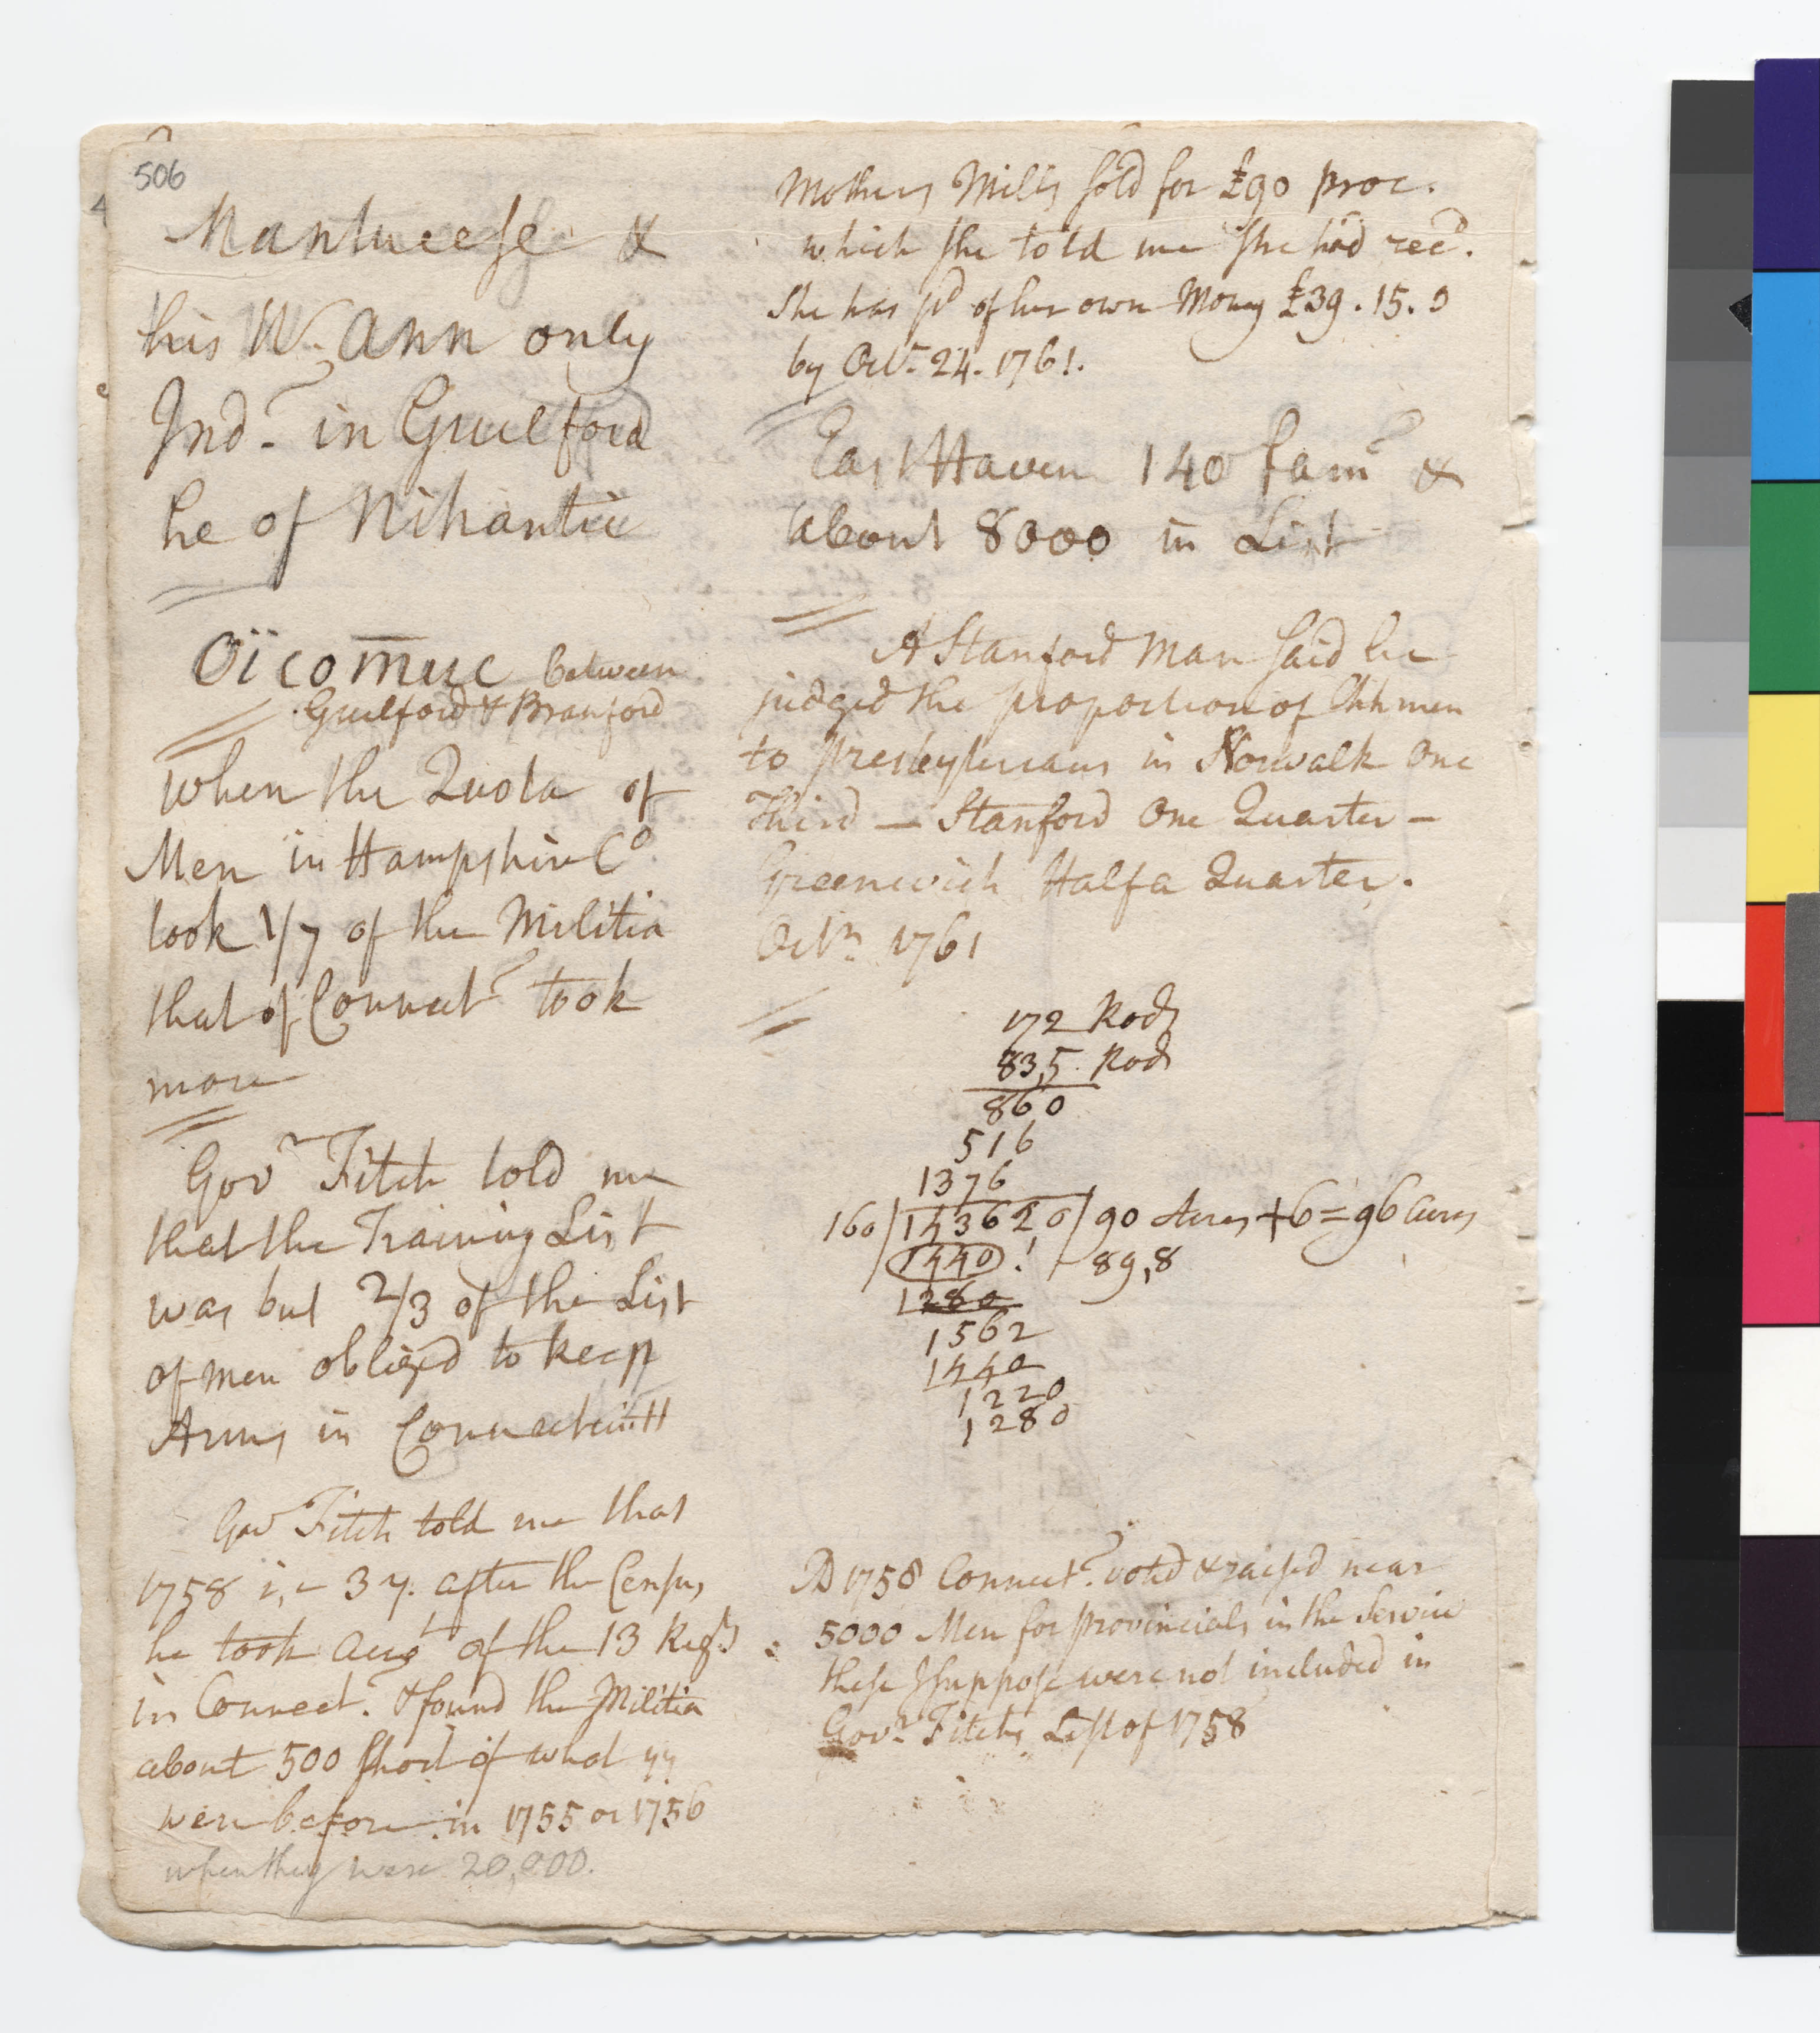 506
4
Mantucese &
his W. Ann only
Ind.ˢ in Guilford
he of Nihantic
Oïcom̄uc between
Guilford & Branford
when the Quota of
Men in Hampshire Cᵒ
took 1/7 of the Militia
that of Connectᵗ took
more
Govʳ Fitch told me
that the Training List
was but 2/3 of the List
of men obliged to keep
Arms in Connecticutt
Govʳ Fitch told me that
1758 i.e 3 y. after the Census
he took accᵗ of the 13 Regᵗˢ
in Connect.ᵗ & found the Militia
about 500 short of what yy
were before in 1755 or 1756
when they were 20,000.
Mothers Mills sold for £90 proc.
which she told me she had recᵈ.
She has pᵈ of her own Money £39.15.0
by Octʳ. 24. 1761.
East Haven 140 famˢ &
about 8000 in List
A Stanford Man said he
judged the proportion of Chhmen
to presbyterians in Norwalk One
Third — Stanford One Quarter —
Greenwich Half a Quarter.
Octʳ. 1761
172 Rods
83,5 Rods
860
516
1376
160/14362,0/90 Acres + 6 = 96 Acres
1440 ! 89,8
1280
1562
1440
1220
1280
AD 1758 Connect.ᵗ voted & raised near
5000 Men for provincials in the Service
these I suppose were not included in
Govʳ. Fitchs List of 1758